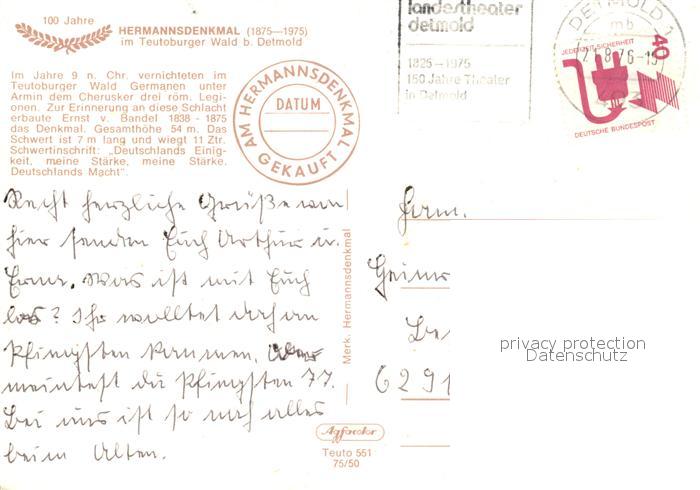 100 Jahre
HERMANNSDENKMAL (1875—1975)
im Teutoburger Wald b. Detmold
Im Jahre 9 n. Chr. vernichteten im
Teutoburger Wald Germanen unter
Armin dem Cherusker drei röm. Legi-
onen. Zur Erinnerung an diese Schlacht
erbaute Ernst v. Bandel 1838 - 1875
das Denkmal. Gesamthöhe 54 m. Das
Schwert ist 7 m lang und wiegt 11 Ztr.
Schwertinschrift: „Deutschlands Einig-
keit, meine Stärke, meine Stärke,
Deutschlands Macht".
AM HERMANNSDENKMAL
DATUM
GEKAUFT
landestheater
detmold
1825-1975
150 Jahre Theater
in Detmold
DETMOLD 1
mb
21.8.76-15
493
JEDERZEIT SICHERHEIT
40
DEUTSCHE BUNDESPOST
Recht herzliche Grüße von
hier senden Euch Arthur u.
Erna. Was ist mit Euch
los? Ihr wolltet doch an
Pfingsten kommen. Oder
meintest du Pfingsten 77.
Bei uns ist so noch alles
beim Alten.
Merk. Hermannsdenkmal
Fam.
Heinr
6291
privacy protection
Datenschutz
Agfacolor
Teuto 551
75/50